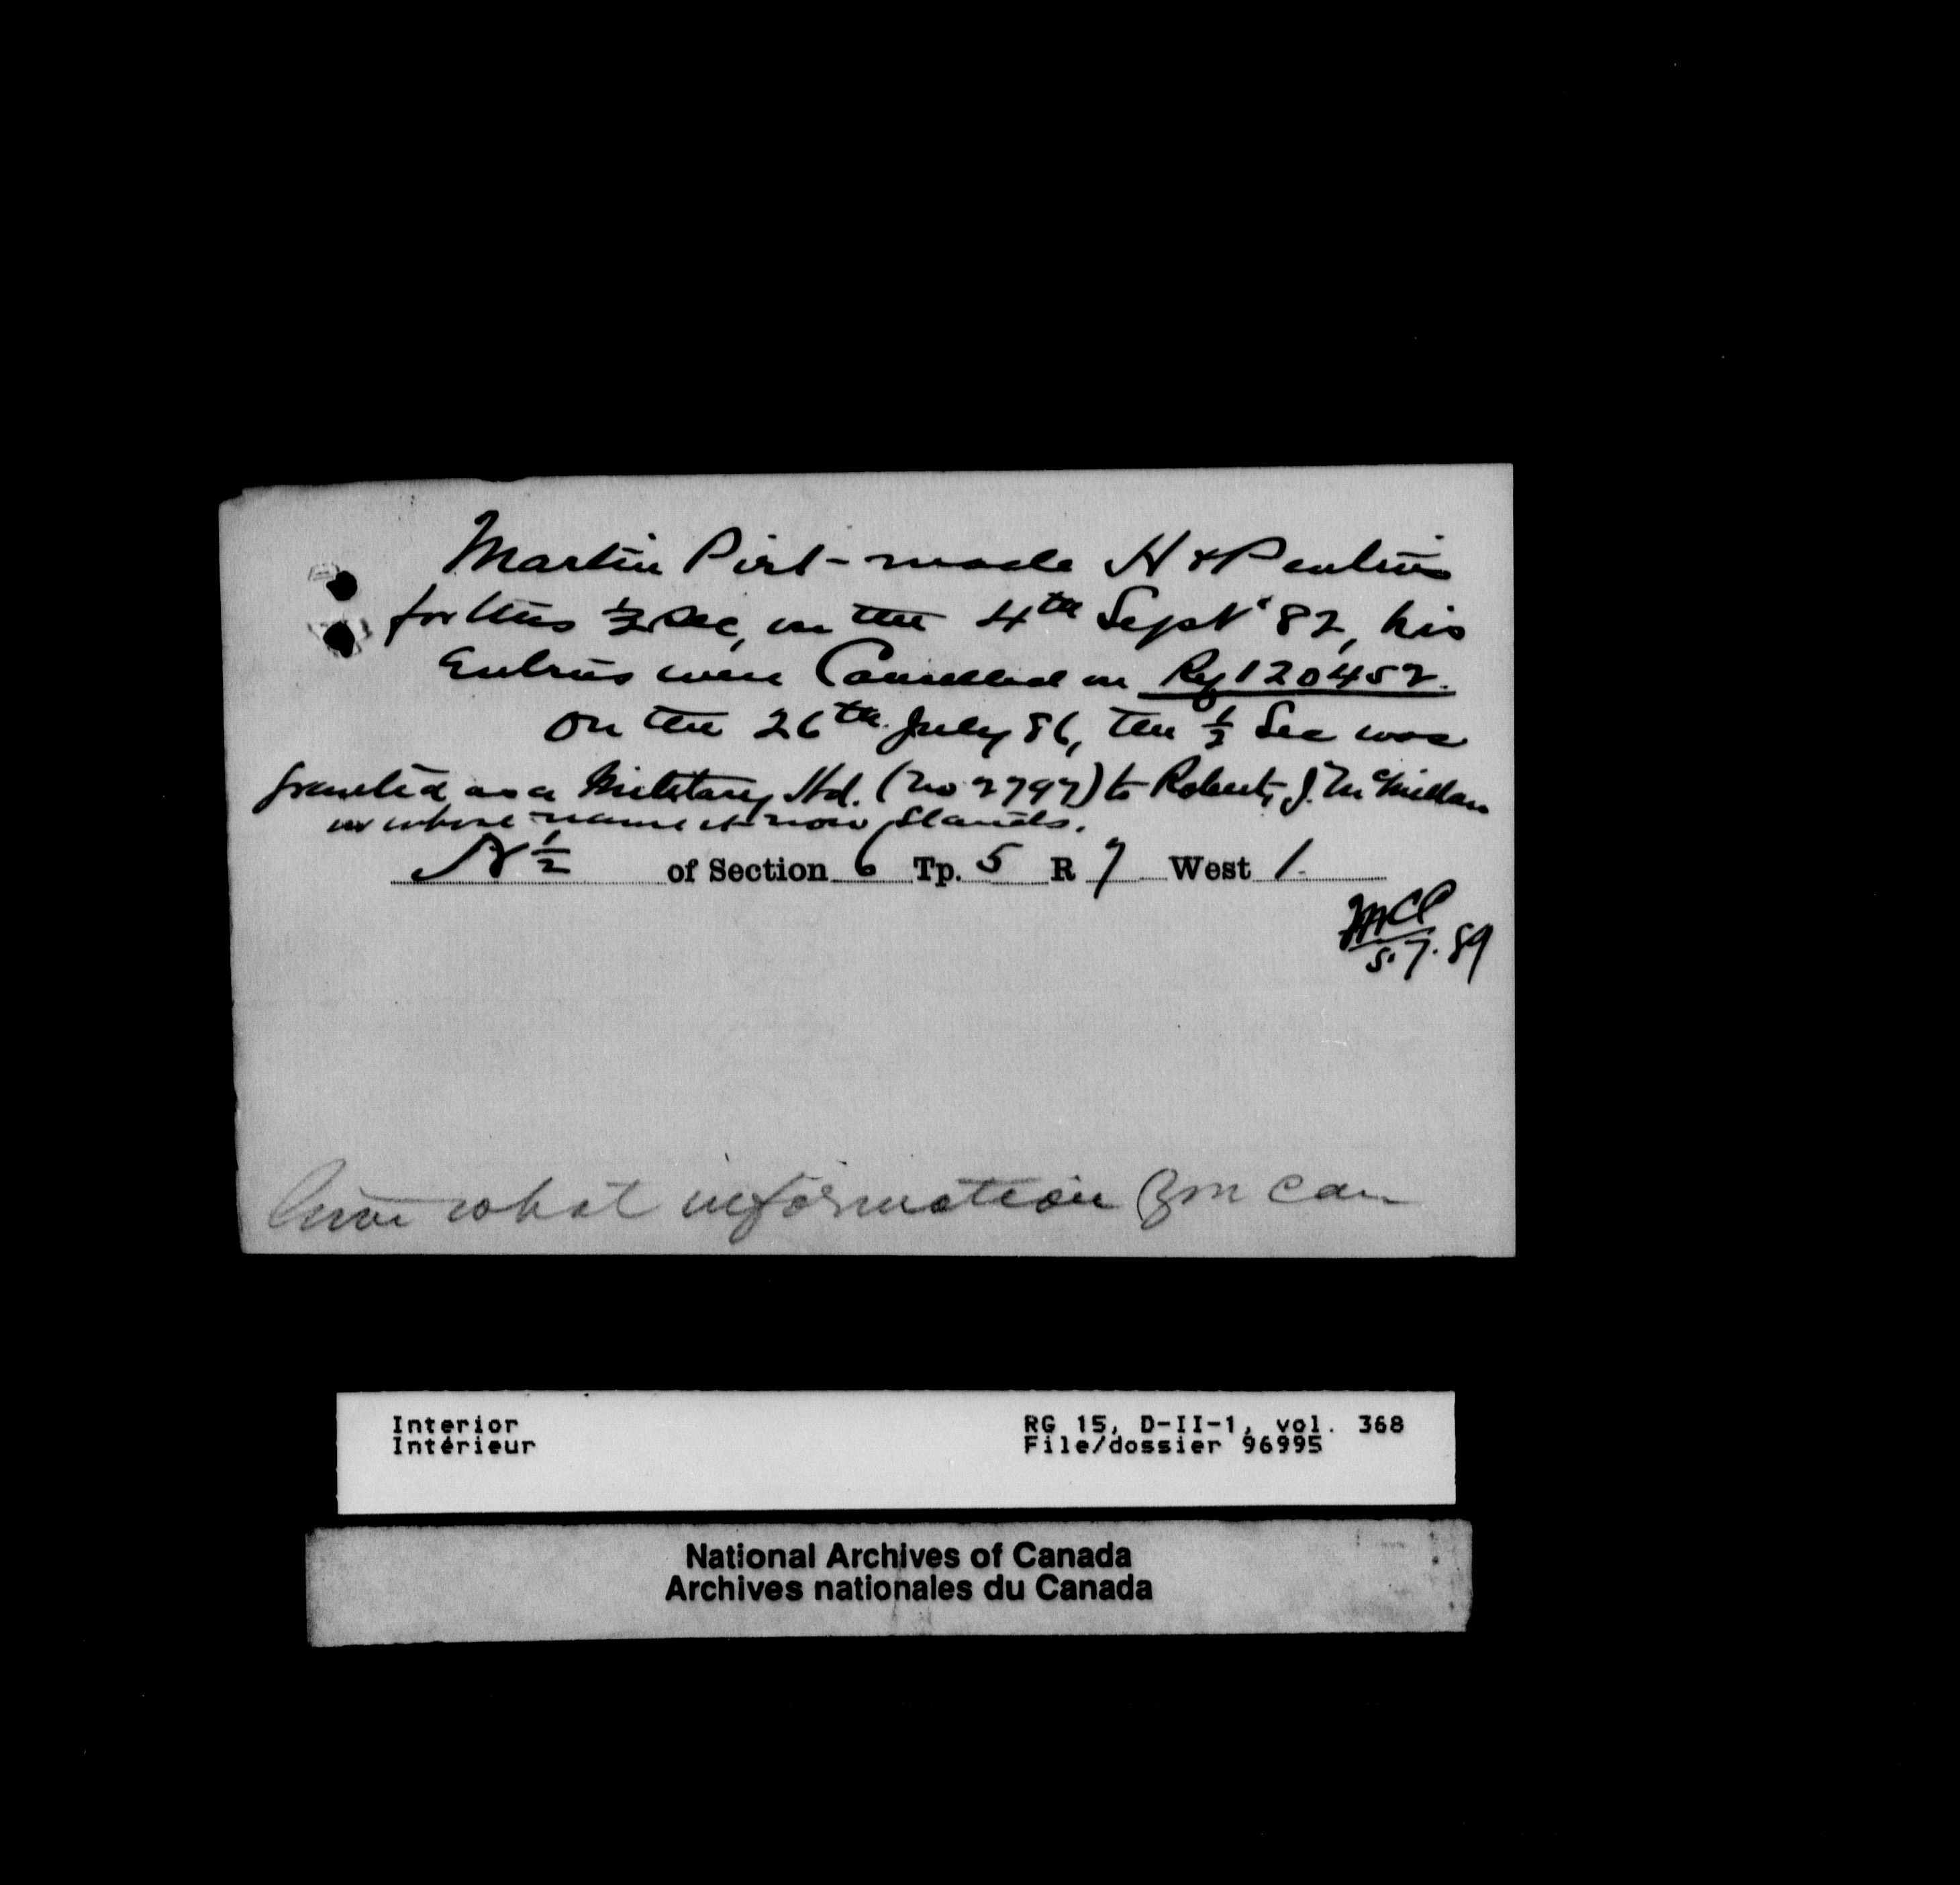 Martin Pirt - made H & P entries
for this ½ Sec, on the 4th Sept '82, his
Entries were Cancelled on Ref 120452.
On the 26th July 86, the ½ Sec was
granted as a Military Hd. (No 2797) to Robert J. McMillan
in whose name it now stands.
N ½ of Section 6 Tp. 5 R 7 West 1.
5.7.89
Give what information you can
Interior RG 15, D-II-1, vol. 368
Intérieur File/dossier 96995
National Archives of Canada
Archives nationales du Canada